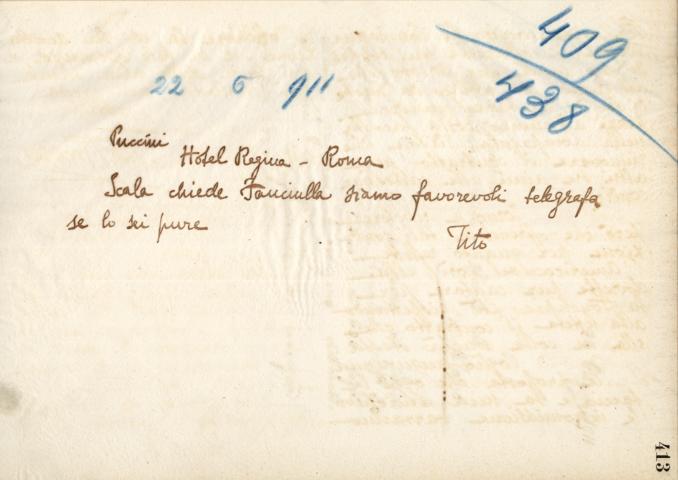 409
438
22 6 911
Puccini
Hotel Regina - Roma
Scala chiede Fanciulla siamo favorevoli telegrafa
se lo sei pure
Tito
413